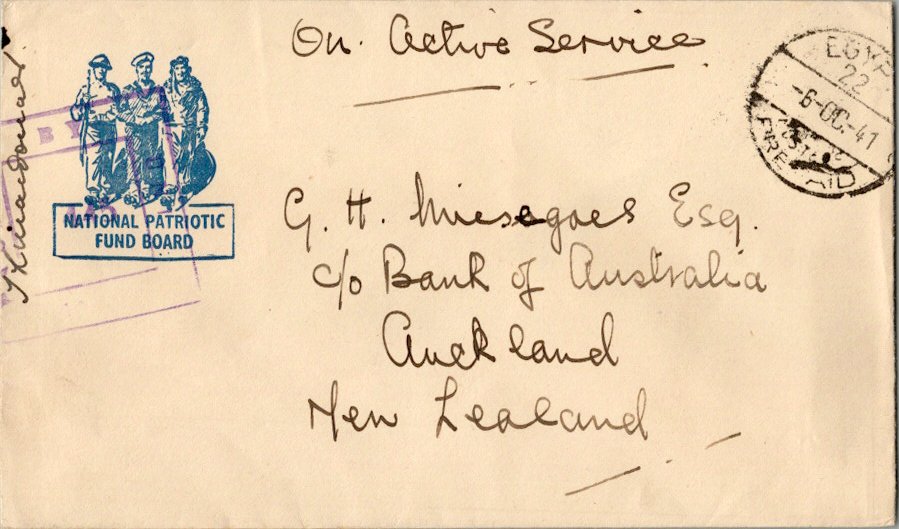 On Active Service
EGYP
22
-6-OC-41
PREPAID
BY
NATIONAL PATRIOTIC
FUND BOARD
G. H. Miesegaes Esq.
c/o Bank of Australia
Auckland
New Zealand